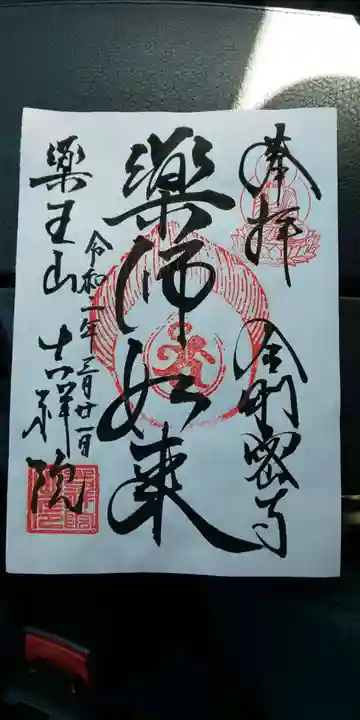 奉拝
金剛密寺
薬師如来
令和二年三月廿一日
薬王山 吉祥院